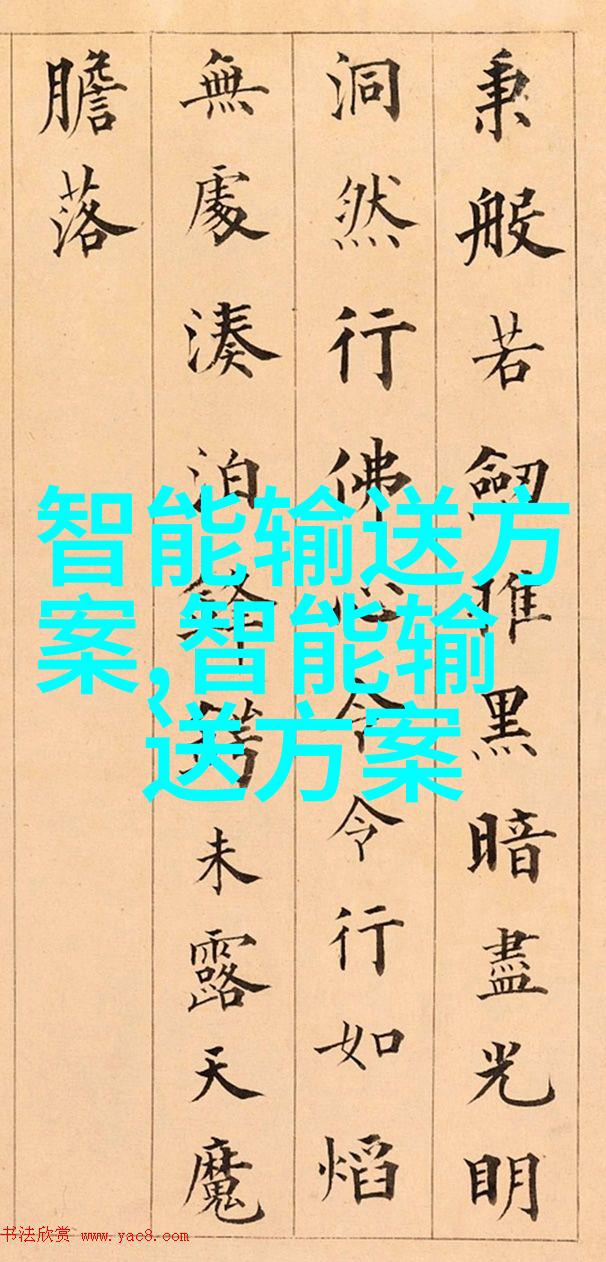 秉般若劒黑暗盡光明
洞然行佛心令令行如焰
無處湊泊鋒鍔未露天魔
膽落
智能输送方
案,智能输
送方案
书法欣赏 www.yac8.com